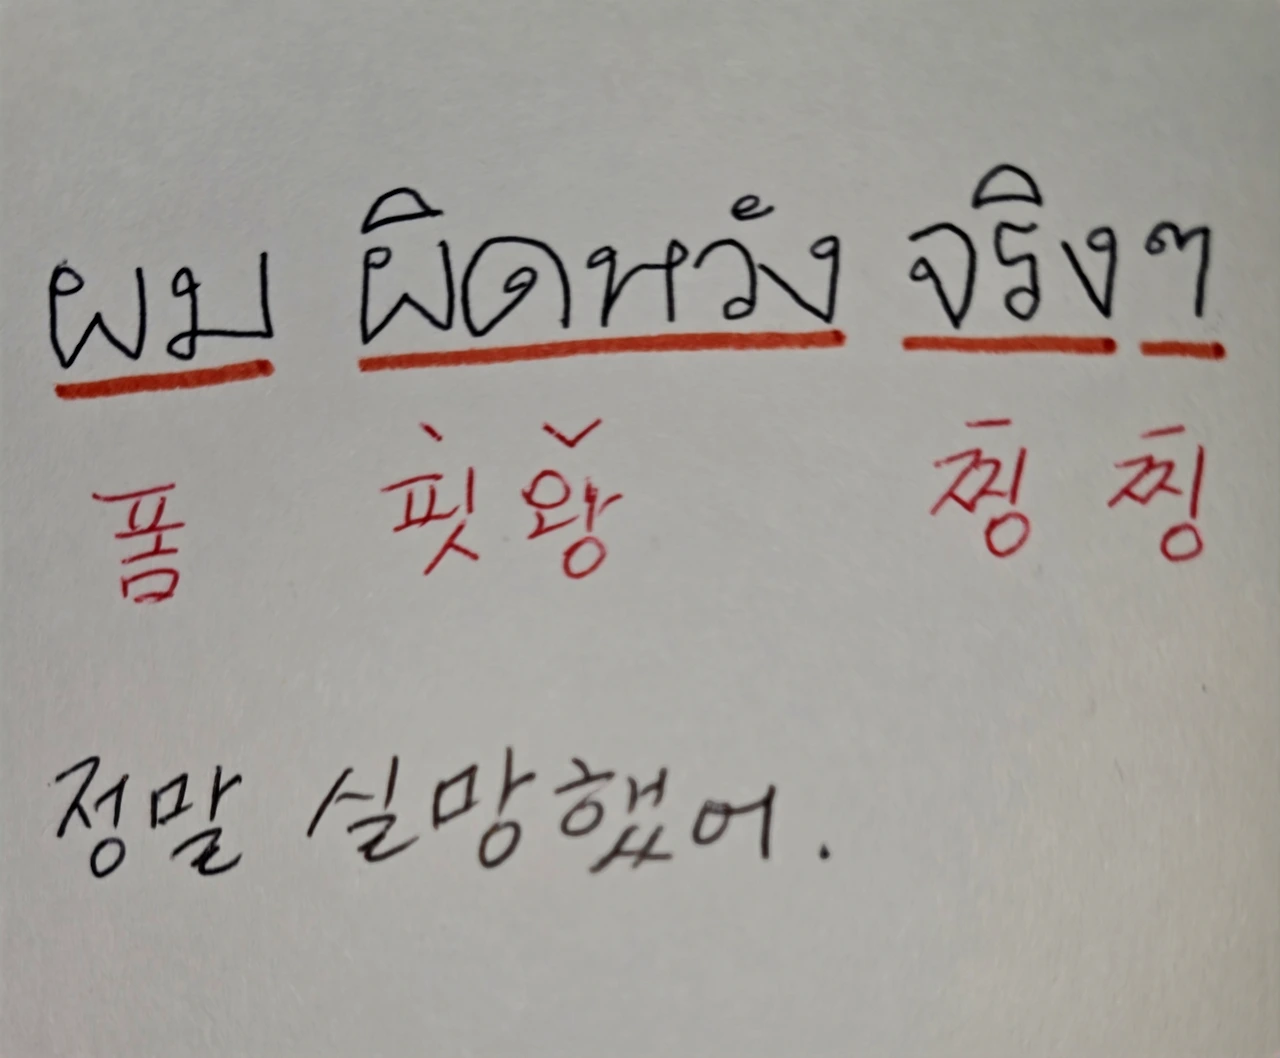 ผม ผิดหวัง จริงๆ
폼 핏 왕 찡 찡
정말 실망했어.